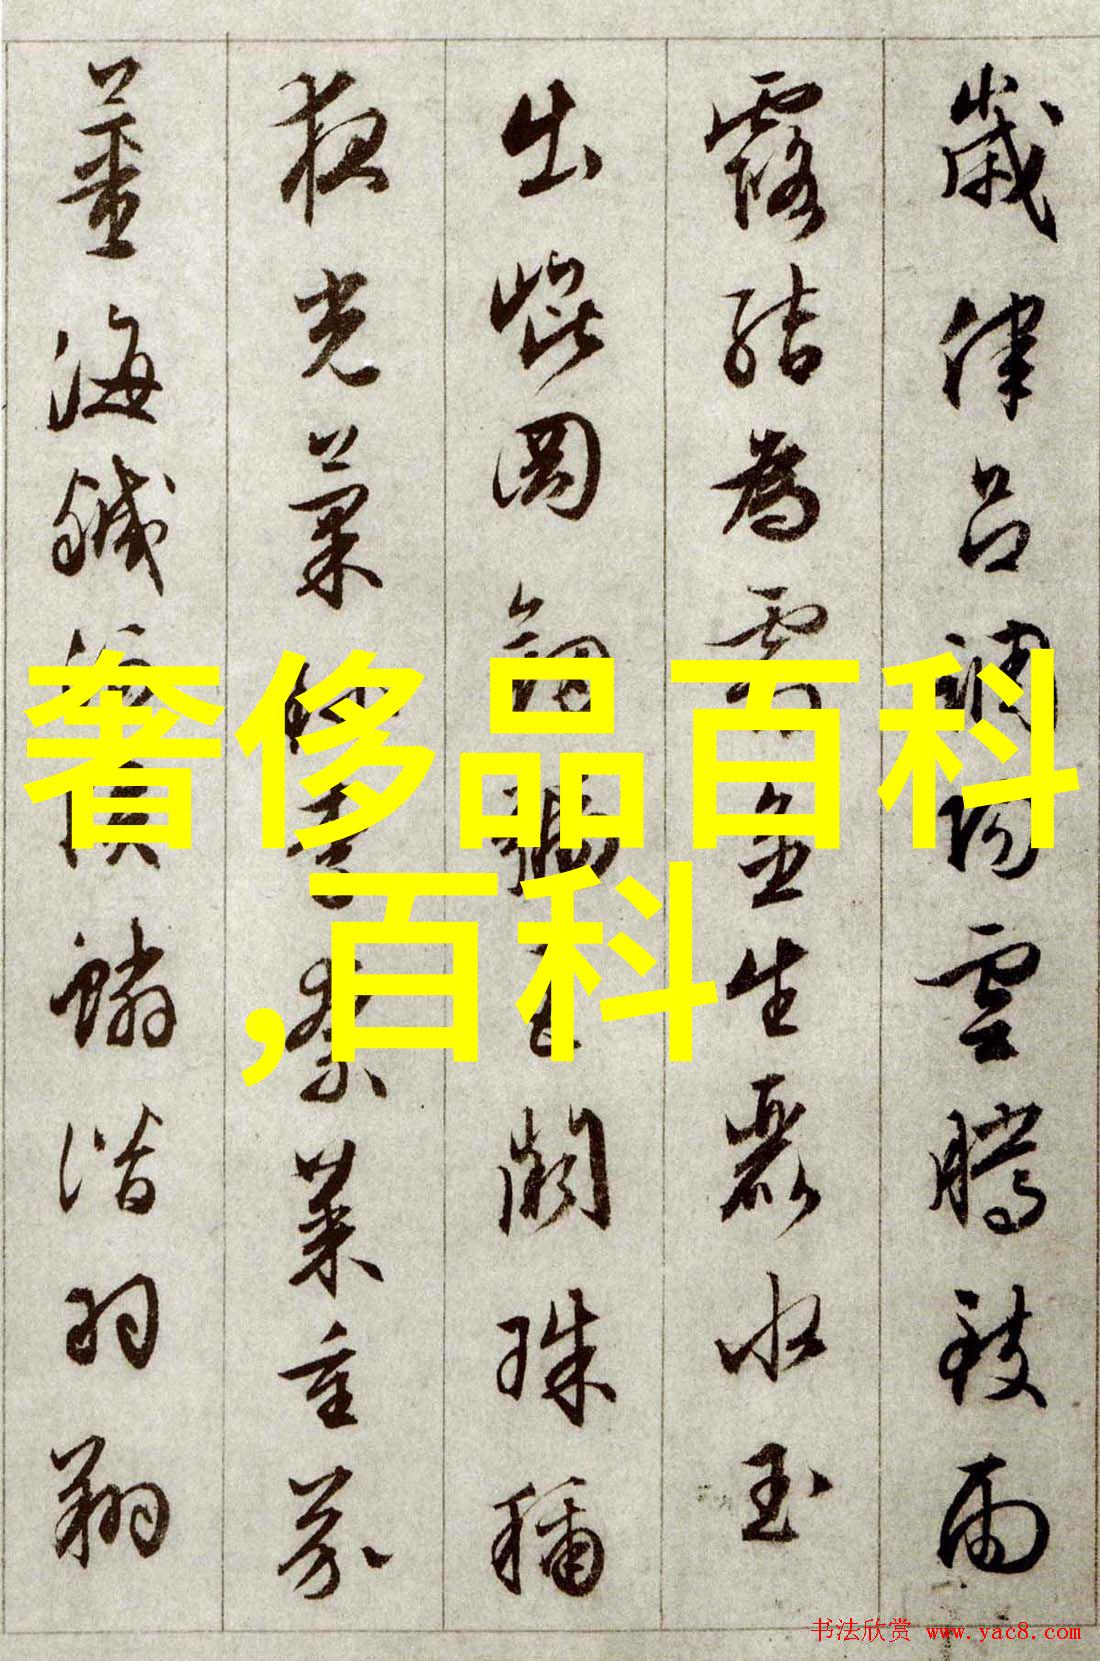 歲律呂調陽雲騰致雨
露結為霜金生麗水玉
出崐岡劍號巨闕珠稱
夜光菓珍李柰菜重芥
薑海鹹河淡鱗潛羽翔
奢侈品百科
,百科
书法欣赏 www.yac8.com